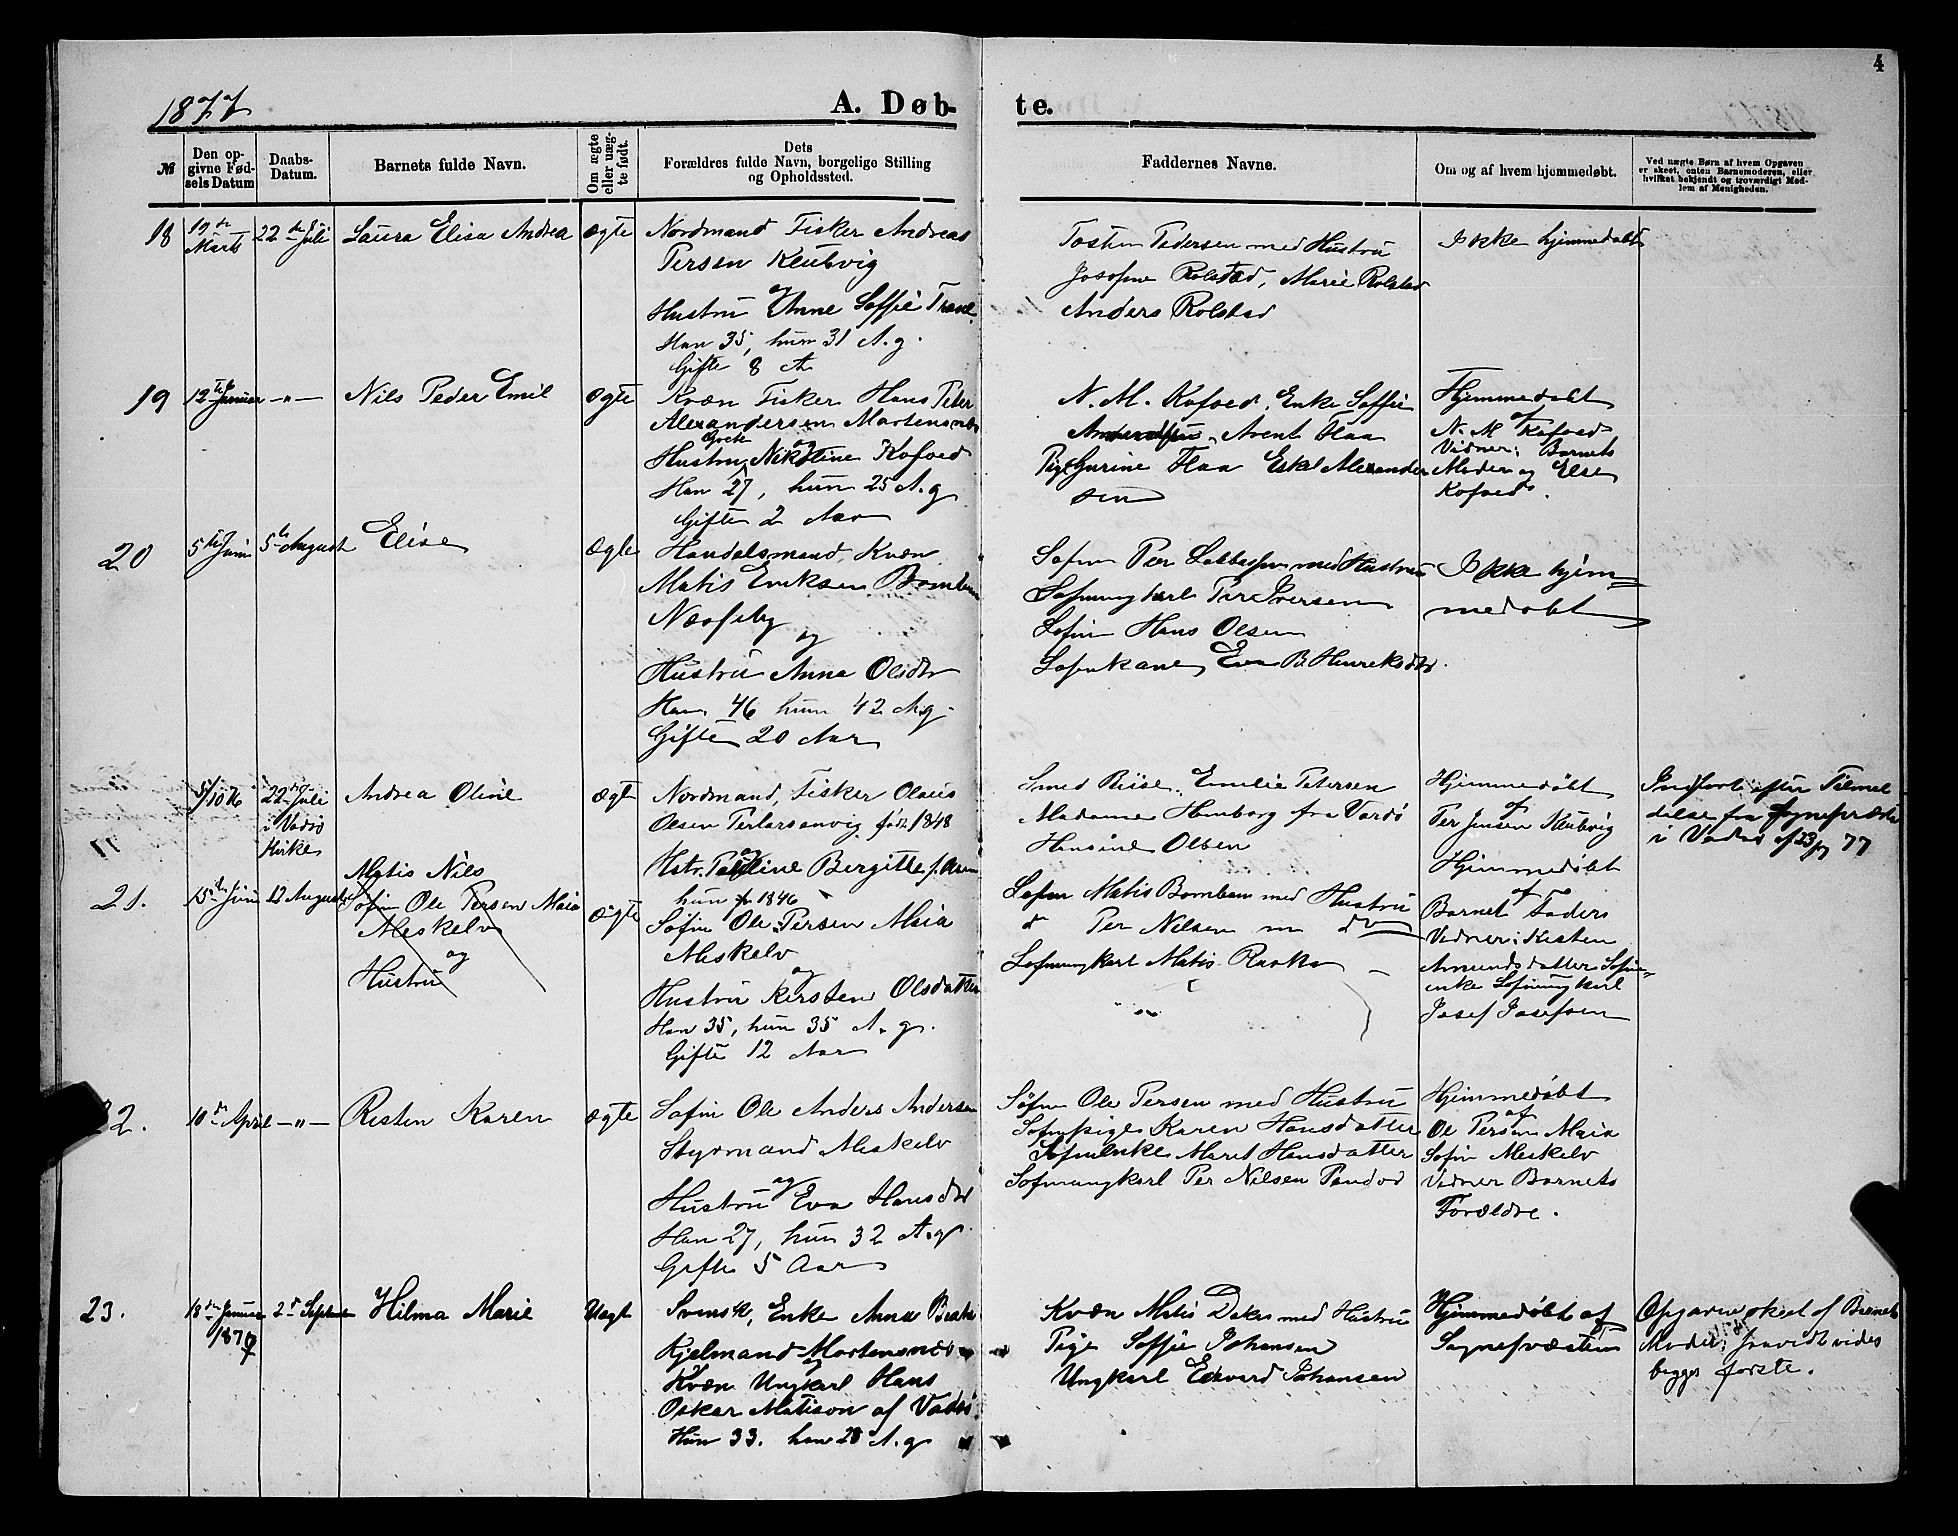 4
1877
A. Døb-
te.
№
Den op-
givne Fød-
sels Datum
Daabs-
Datum.
Barnets fulde Navn.
Om ægte
eller uæg-
te født.
Dets
Forældres fulde Navn, borgelige Stilling
og Opholdssted.
Faddernes Navne.
Om og af hvem hjemmedøbt.
Ved uægte Børn af hvem Opgaven
er skeet, enten Barnemoderen, eller
hvilket bekjendt og troværdigt Med-
lem af Menigheden.
18
19de
Marts
22de Juli
Laura Elisa Andrea
ægte
Nordmand Fisker Andreas
Persen Klubvig
og
Hustru Anne Soffie
Han 35, hun 31 A. g.
Gifte 8 A
Tosten Pedersen med Hustru
Josefine Rolstad, Marie Rolstad
Anders Rolstad
Ikke hjemmedøbt
19
12te Januar
-"-
Nils Peder Emil
ægte
Kvæn Fisker Hans Peter
Alexandersen Mortensnæs
Grete og
Hustru Nikoline Kofoed
Han 27, hun 25 A. g
Gifte 2 Aar
N. M. Kofoed, Enke Soffie
Arent Flaa
Pige Gurine Flaa Eskel Alexander
sen
Hjemmedøbt
af
N. M Kofoed
Vidner: Barnets
Moder og Else
Kofoed.
20
5te Juni
5te August
Elise
ægte
Handelsmand, Kvæn
Matis Eriksen Bomban
Næsseby
og
Hustru Anna Olsdtr
Han 46 hun 42 A.g.
Gifte 20 Aar
Søfin Per med Hustru
Søfinungkarl Per Iversen
Søfin Hans Olsen
Søfinkone Eva B. Henriksdtr.
Ikke hjem
medøbt
5/10 76
22de Juli
i Vadsø
Kirke
Andrea Oline
ægt
Nordmand, Fisker Olaus
Olsen Perlarsenvig født 1848
og
Hstr. Pauline Bergitte f.
hun f 1846
Smed Biise, Emilie Petersen
Madame Homborg fra Vardø
Hansine Olsen
Hjemmedøbt
af
Per Jensen Klubvig
Indført efter Tilmel
delse fra Sognepræsten
i Vadsø af 23/7 77
21.
15de Juni
12 August
Matis Nils
Søfin Ole Persen Maia
Meskelv
og
Hustru
ægte
Søfin Ole Persen Maia
Meskelv
og
Hustru Kirsten Olsdatter
Han 35, hun 35 A. g.
Gifte 12 Aar
Søfin Matis Bomban med Hustru
do Per Nilsen m do
Søfinungkarl Matis
Hjemmedøbt
af
Barnets Fader
Vidner: Kirsten
Amundsdatter Søfin-
enke Søfinungkarl
Josef Josefsen
22.
10de April
-"-
Risten Karen
ægte
Søfin Ole Anders Andersen
Styrmand Meskelv
og
Hustru Eva Hansdtr
Han 27, hun 32 A.g.
Gifte 5 Aar
Søfin Ole Persen med Hustru
Søfinpige Karen Hansdatter
Søfinenke Maret Hansdatter
Søfinungkarl Per Nilsen
Hjemmedøbt
af
Ole Persen Maia
Søfin Meskelv
Vidner Barnets
Forældre.
23.
18de Januar
1877
2d Septembr
Hilma Marie
Uægt
Svensk, Enke Anna Beata
Kjelmand Mortensnæs
og
Kvæn Ungkarl Hans
Oskar Matison af Vadsø
Hun 33. han 28 A. g
Kvæn Matis med Hustru
Pige Soffie Johansen
Ungkarl Edvard Johansen
Hjemmedøbt af
Sognepræsten
Opgavene skeet af Barnets
Moder;
begges første.